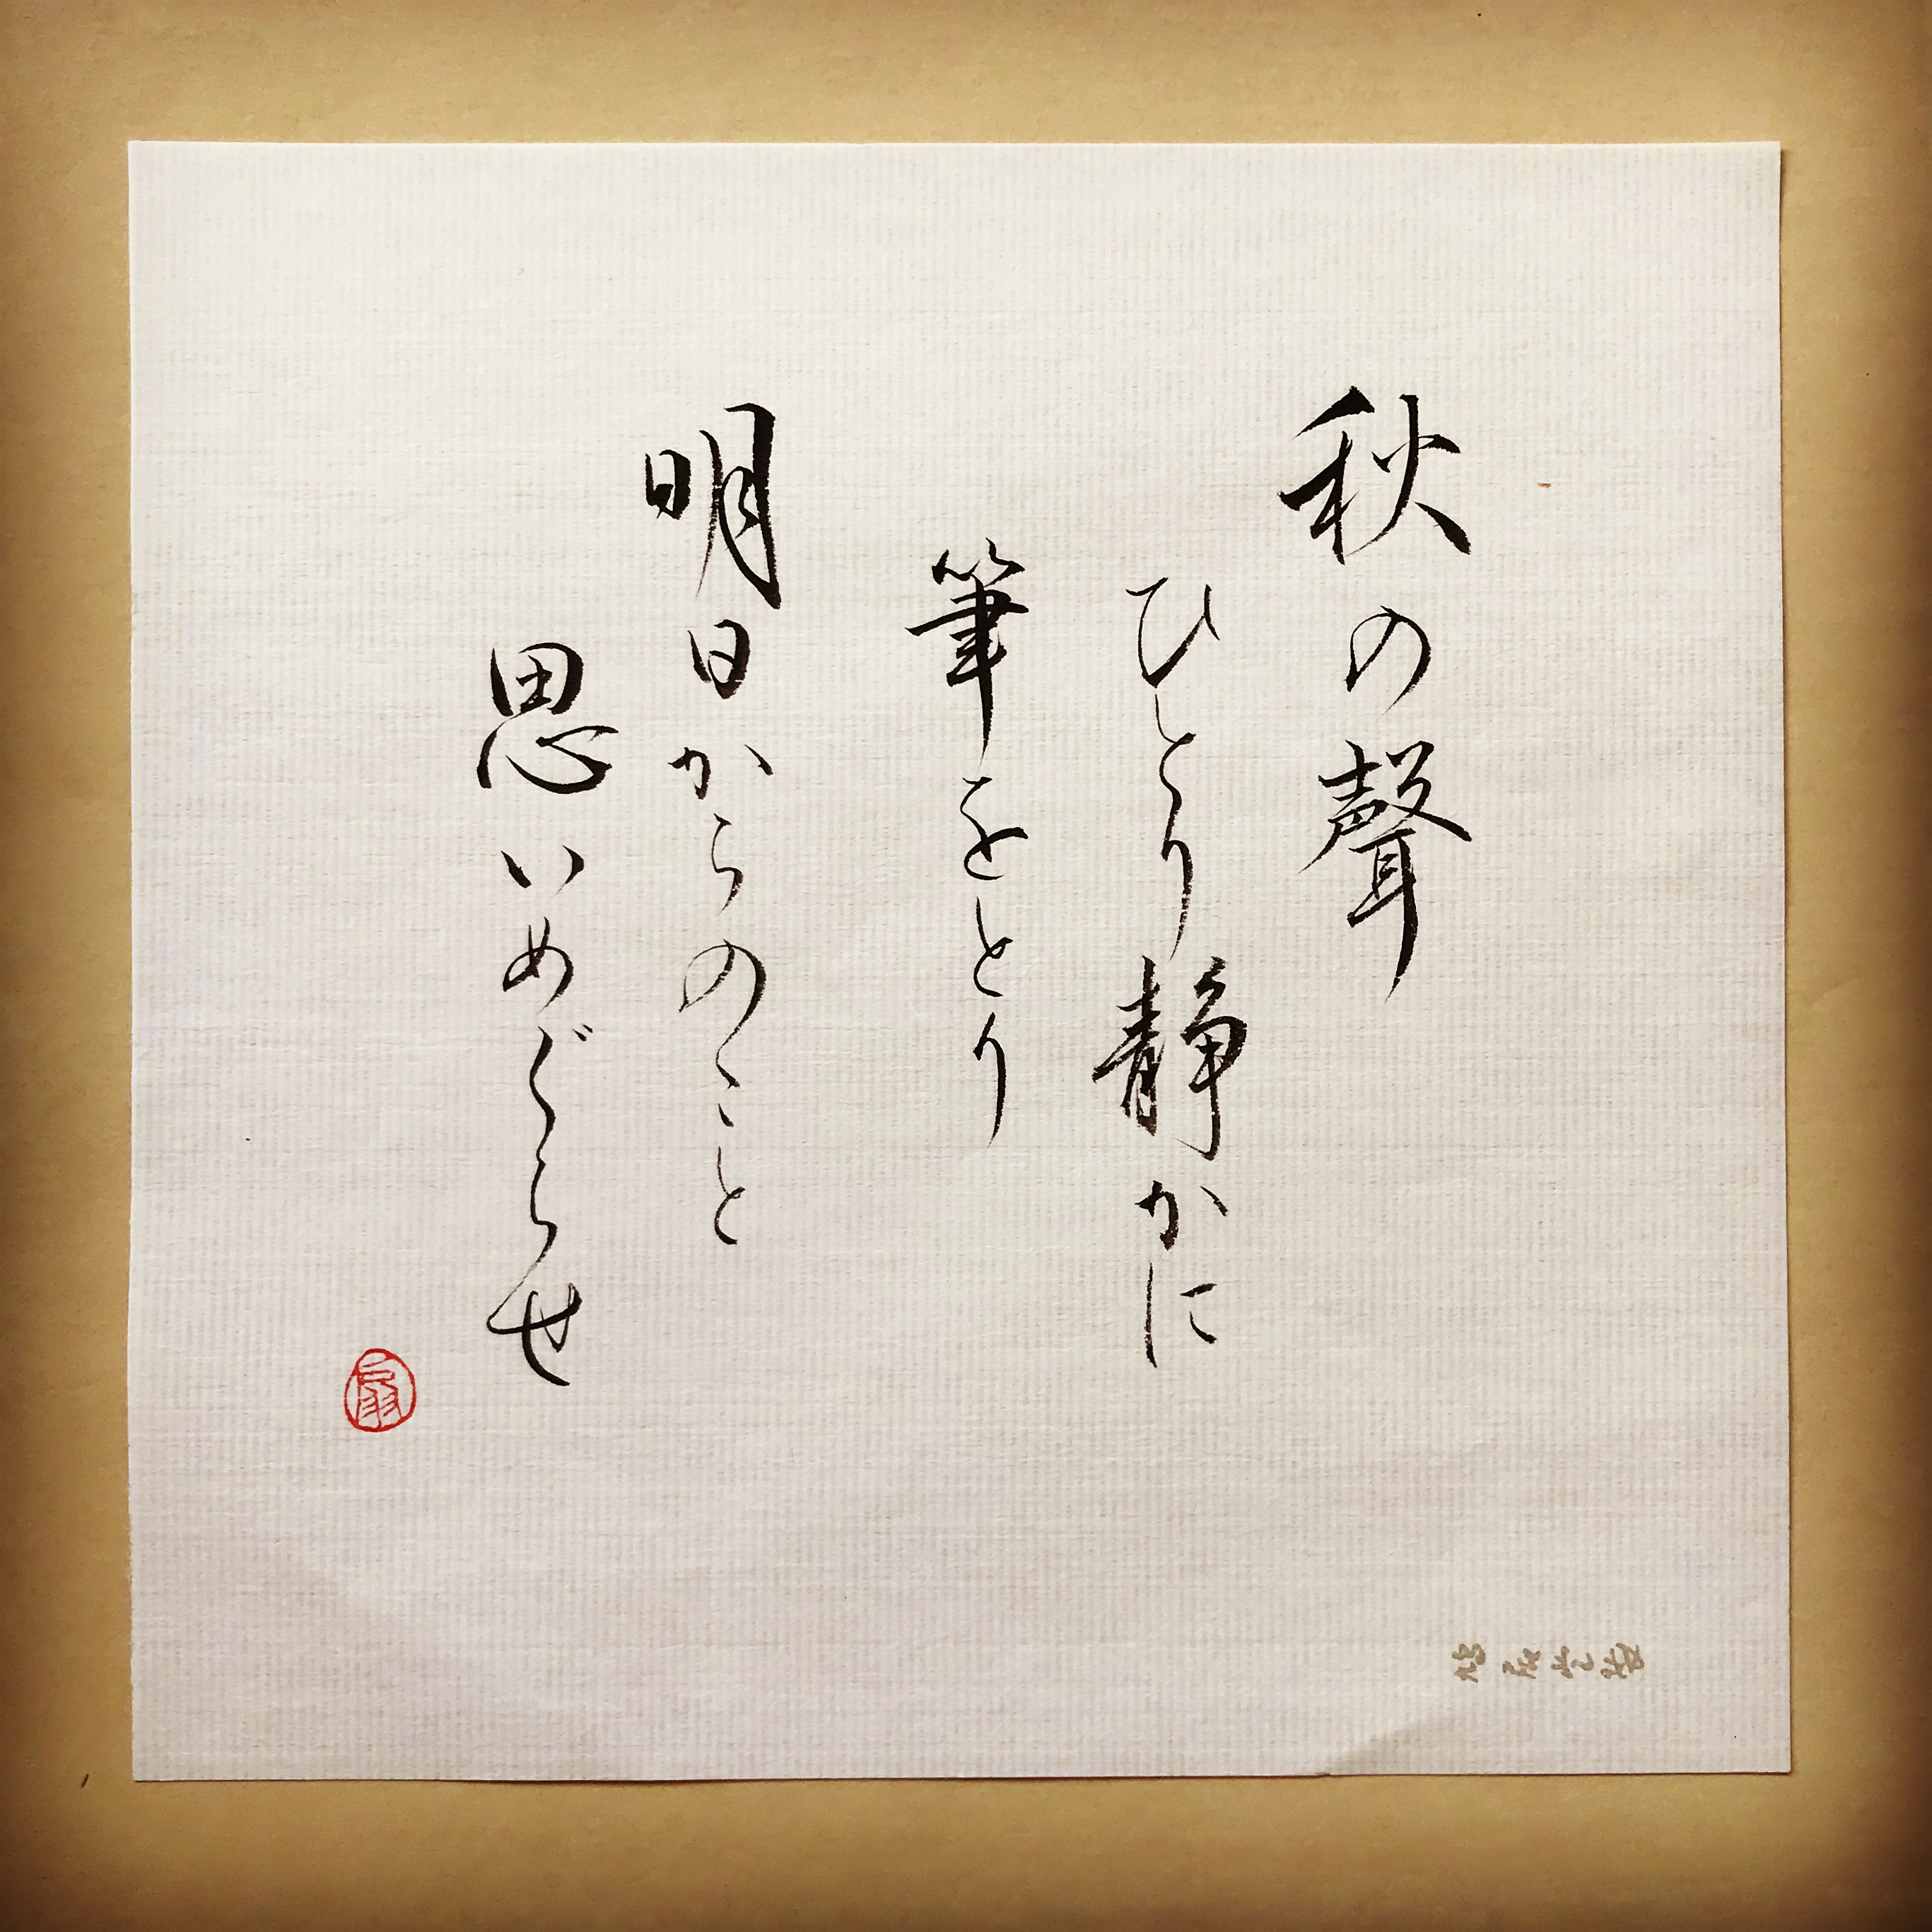 秋の聲
ひとり静かに
筆をとり
明日からのこと
思いめぐらせ
扇